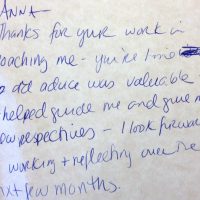 ANNA
Thanks for your work in
oaching me - you're
ad advice was valuable
helped guide me and give m
ew perspectives - I look forwar
working + reflecting over the
xt few months.